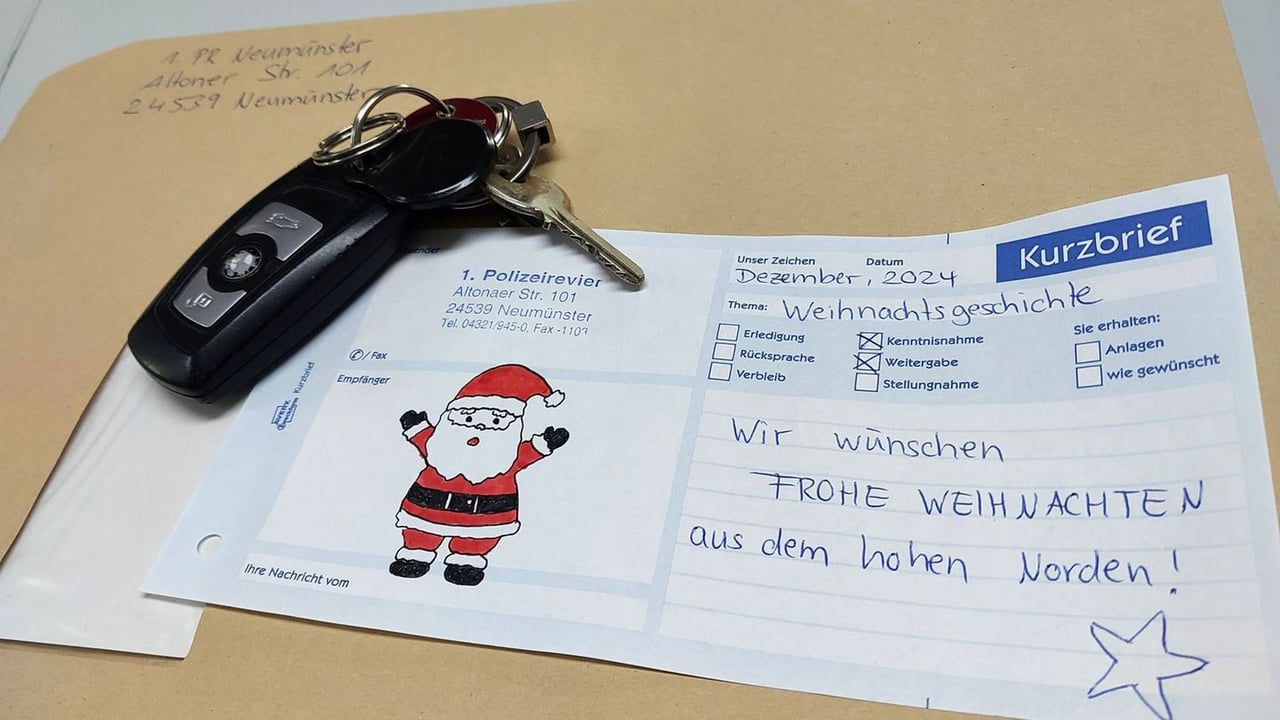 1. PR Neumünster
Altoner Str. 101
24539 Neumünster
Kurzbrief
1. Polizeirevier
Altonaer Str. 101
24539 Neumünster
Tel. 04321/945-0, Fax -1103
/ Fax
Empfänger
Ihre Nachricht vom
Kurzbrief
Unser Zeichen Datum
Dezember, 2024
Thema: Weihnachtsgeschichte
Erledigung
Rücksprache
Verbleib
Kenntnisnahme
Weitergabe
Stellungnahme
Sie erhalten:
Anlagen
wie gewünscht
Wir wünschen
FROHE WEIHNACHTEN
aus dem hohen Norden!